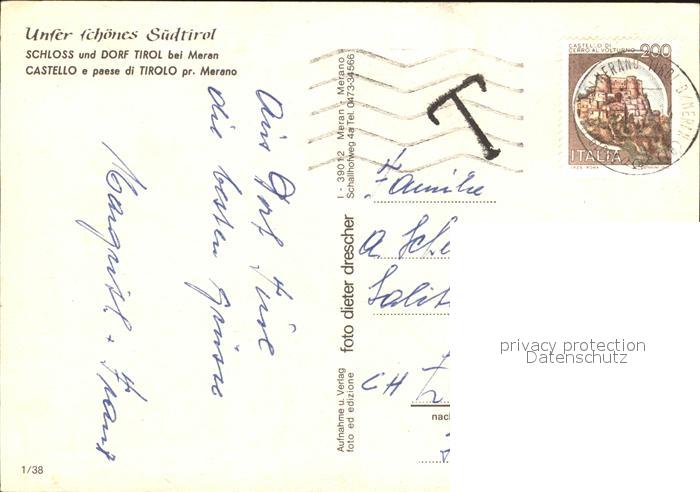 Unser schönes Südtirol
SCHLOSS und DORF TIROL bei Meran
CASTELLO e paese di TIROLO pr. Merano
Aus Dorf Tirol
die besten Grüsse
Margrit + Franz
1/38
I - 39012 Meran - Merano
Schallhofweg 4a Tel. 0473-34566
foto dieter drescher
Aufnahme u. Verlag
foto ed edizione
T
CASTELLO DI
CERRO AL VOLTURNO
200
ITALIA
Familie
A. Sche
CH Z
nach
privacy protection
Datenschutz